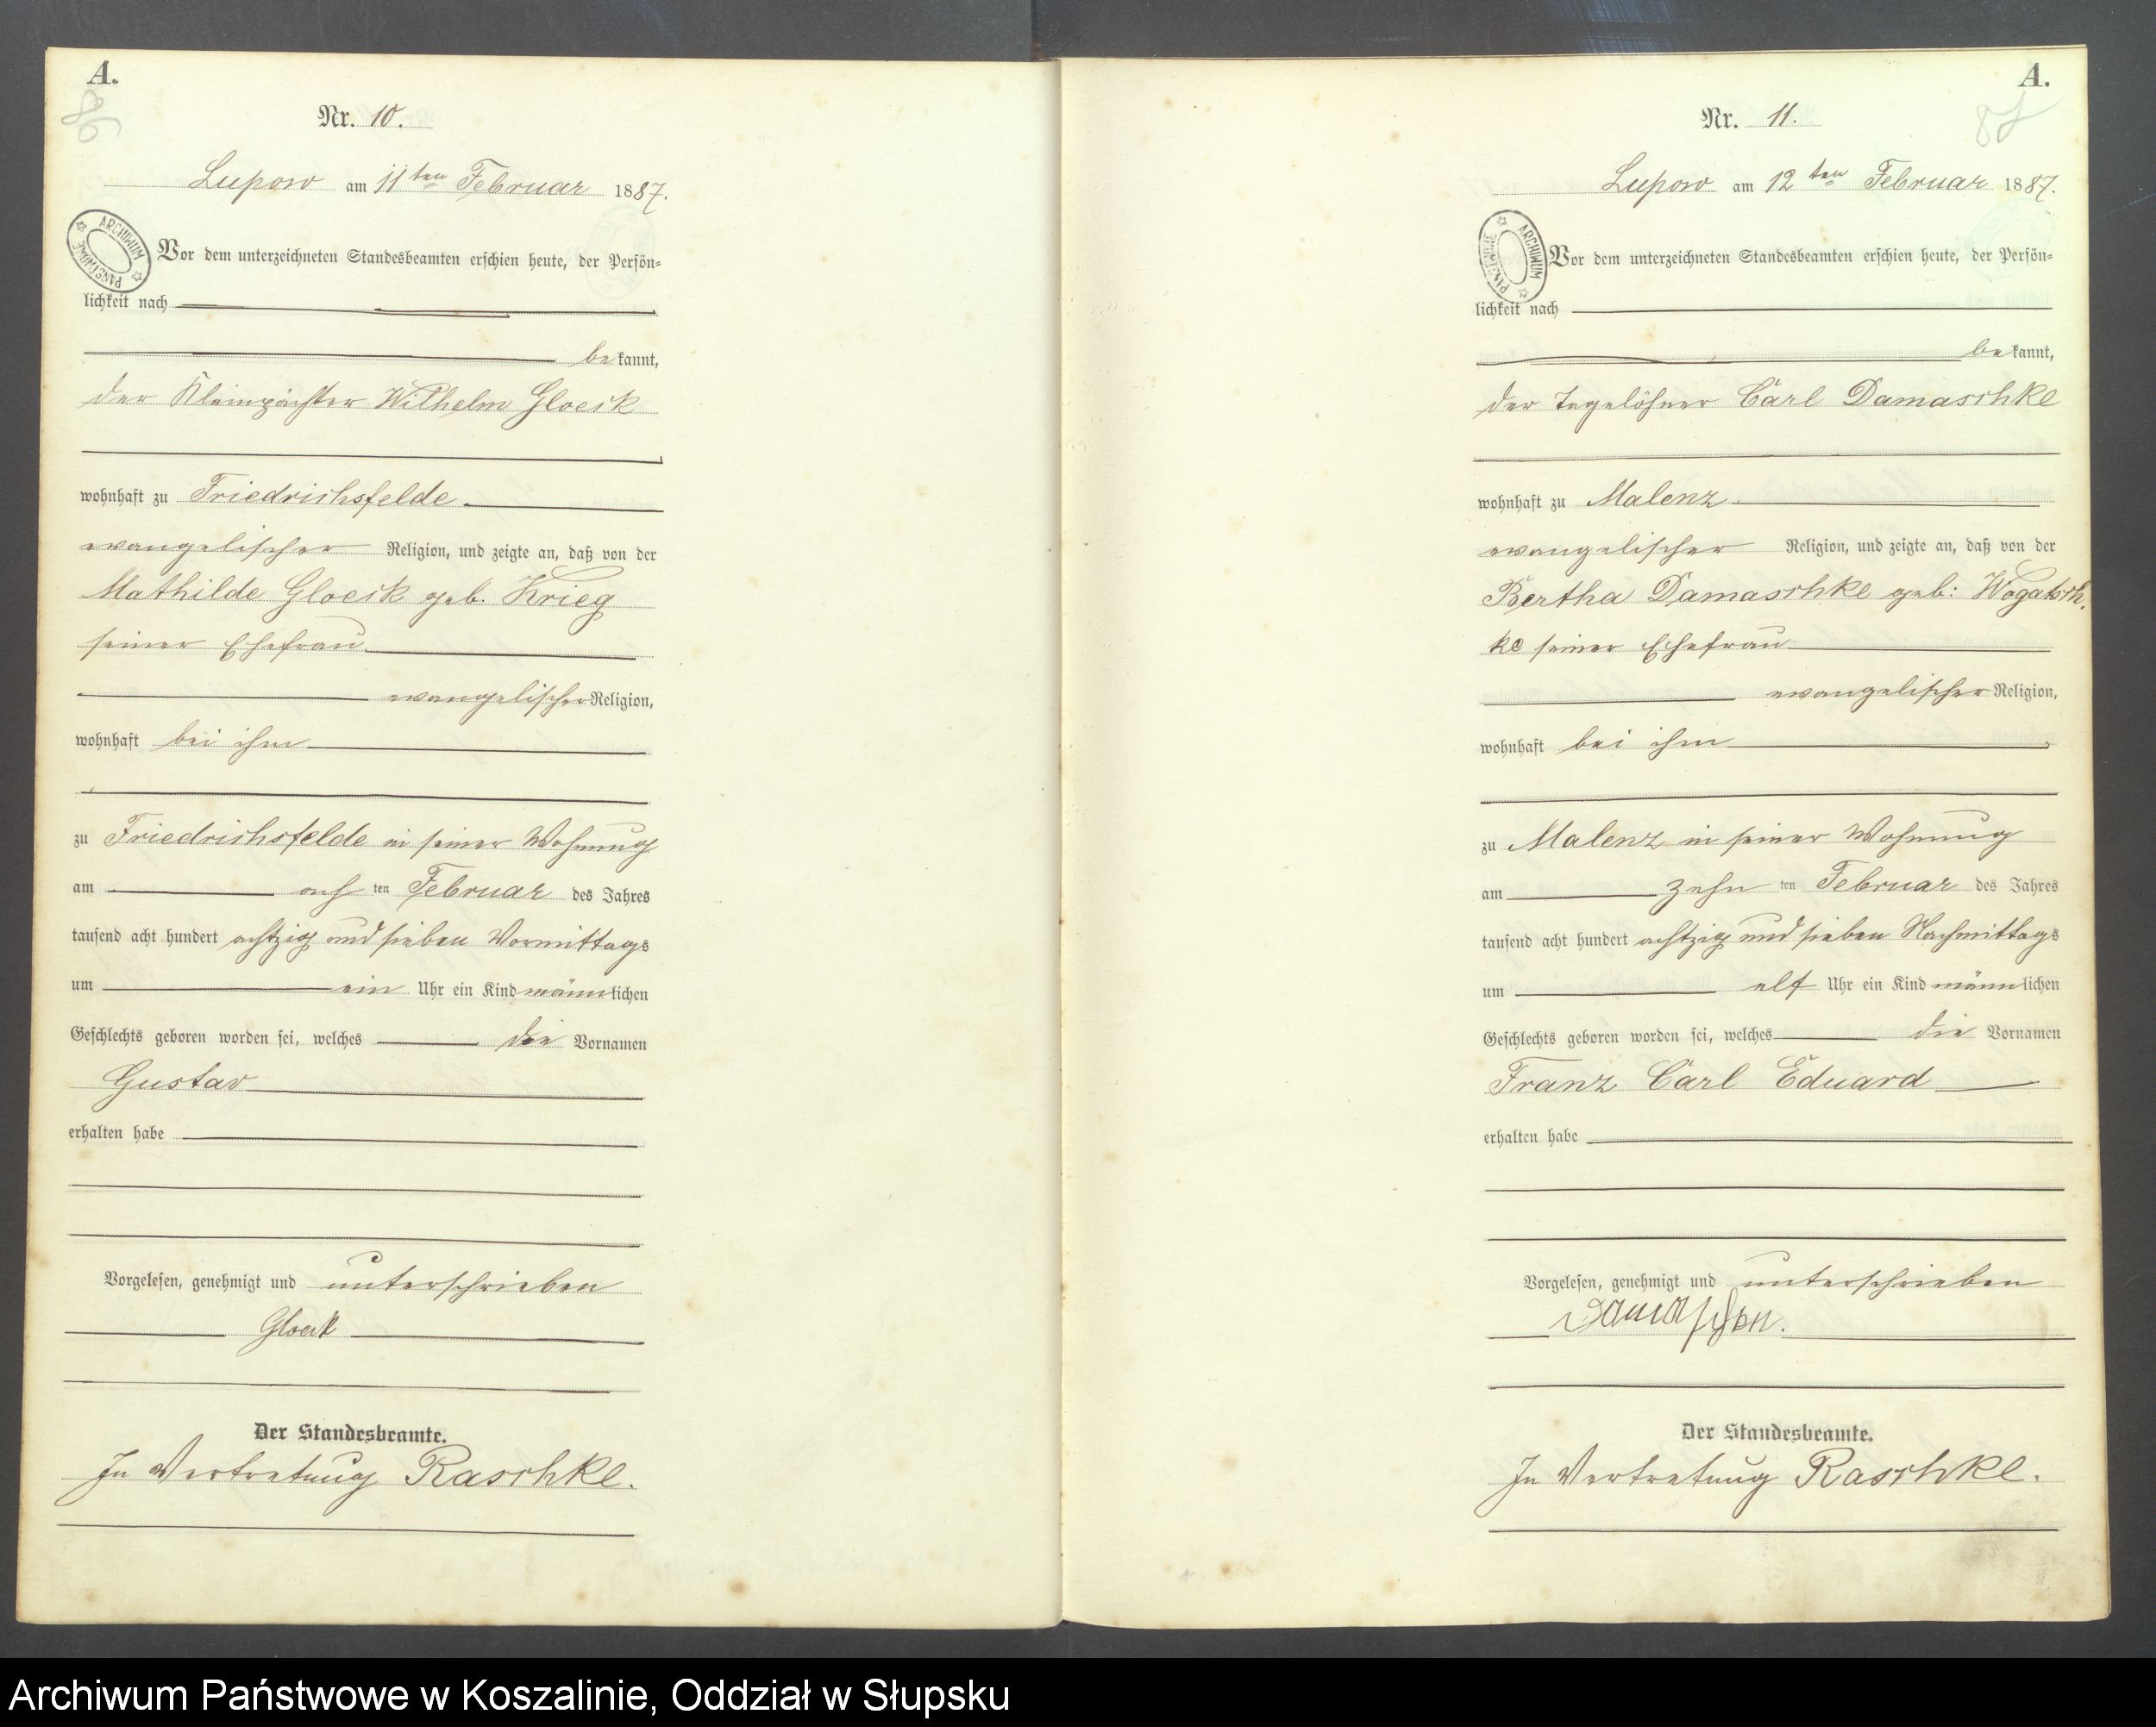 A.
86
Nr. 10.
Lupow am 11ten Februar 1887.
ARCHIWUM PAŃSTWOWE
Vor dem unterzeichneten Standesbeamten erschien heute, der Persön-
lichkeit nach
bekannt,
der Kleinpächter Wilhelm Gloeck
wohnhaft zu Friedrichsfelde
evangelischer Religion, und zeigte an, daß von der
Mathilde Gloeck geb. Krieg
seiner Ehefrau
evangelischer Religion,
wohnhaft bei ihm
zu Friedrichsfelde in seiner Wohnung
am acht ten Februar des Jahres
tausend acht hundert achtzig und sieben Vormittags
um ein Uhr ein Kind männlichen
Geschlechts geboren worden sei, welches die Vornamen
Gustav
erhalten habe
Vorgelesen, genehmigt und unterschrieben
Gloeck
Der Standesbeamte.
In Vertretung Raschke.
A.
87
Nr. 11.
Lupow am 12ten Februar 1887.
ARCHIWUM PAŃSTWOWE
Vor dem unterzeichneten Standesbeamten erschien heute, der Persön-
lichkeit nach
bekannt,
der Tagelöhner Carl Damaschke
wohnhaft zu Malenz
evangelischer Religion, und zeigte an, daß von der
Bertha Damaschke geb: Wogatsch-
ke seiner Ehefrau
evangelischer Religion,
wohnhaft bei ihm
zu Malenz in seiner Wohnung
am zehn ten Februar des Jahres
tausend acht hundert achtzig und sieben Nachmittags
um elf Uhr ein Kind männlichen
Geschlechts geboren worden sei, welches die Vornamen
Franz Carl Eduard
erhalten habe
Vorgelesen, genehmigt und unterschrieben
Der Standesbeamte.
In Vertretung Raschke.
Archiwum Państwowe w Koszalinie, Oddział w Słupsku